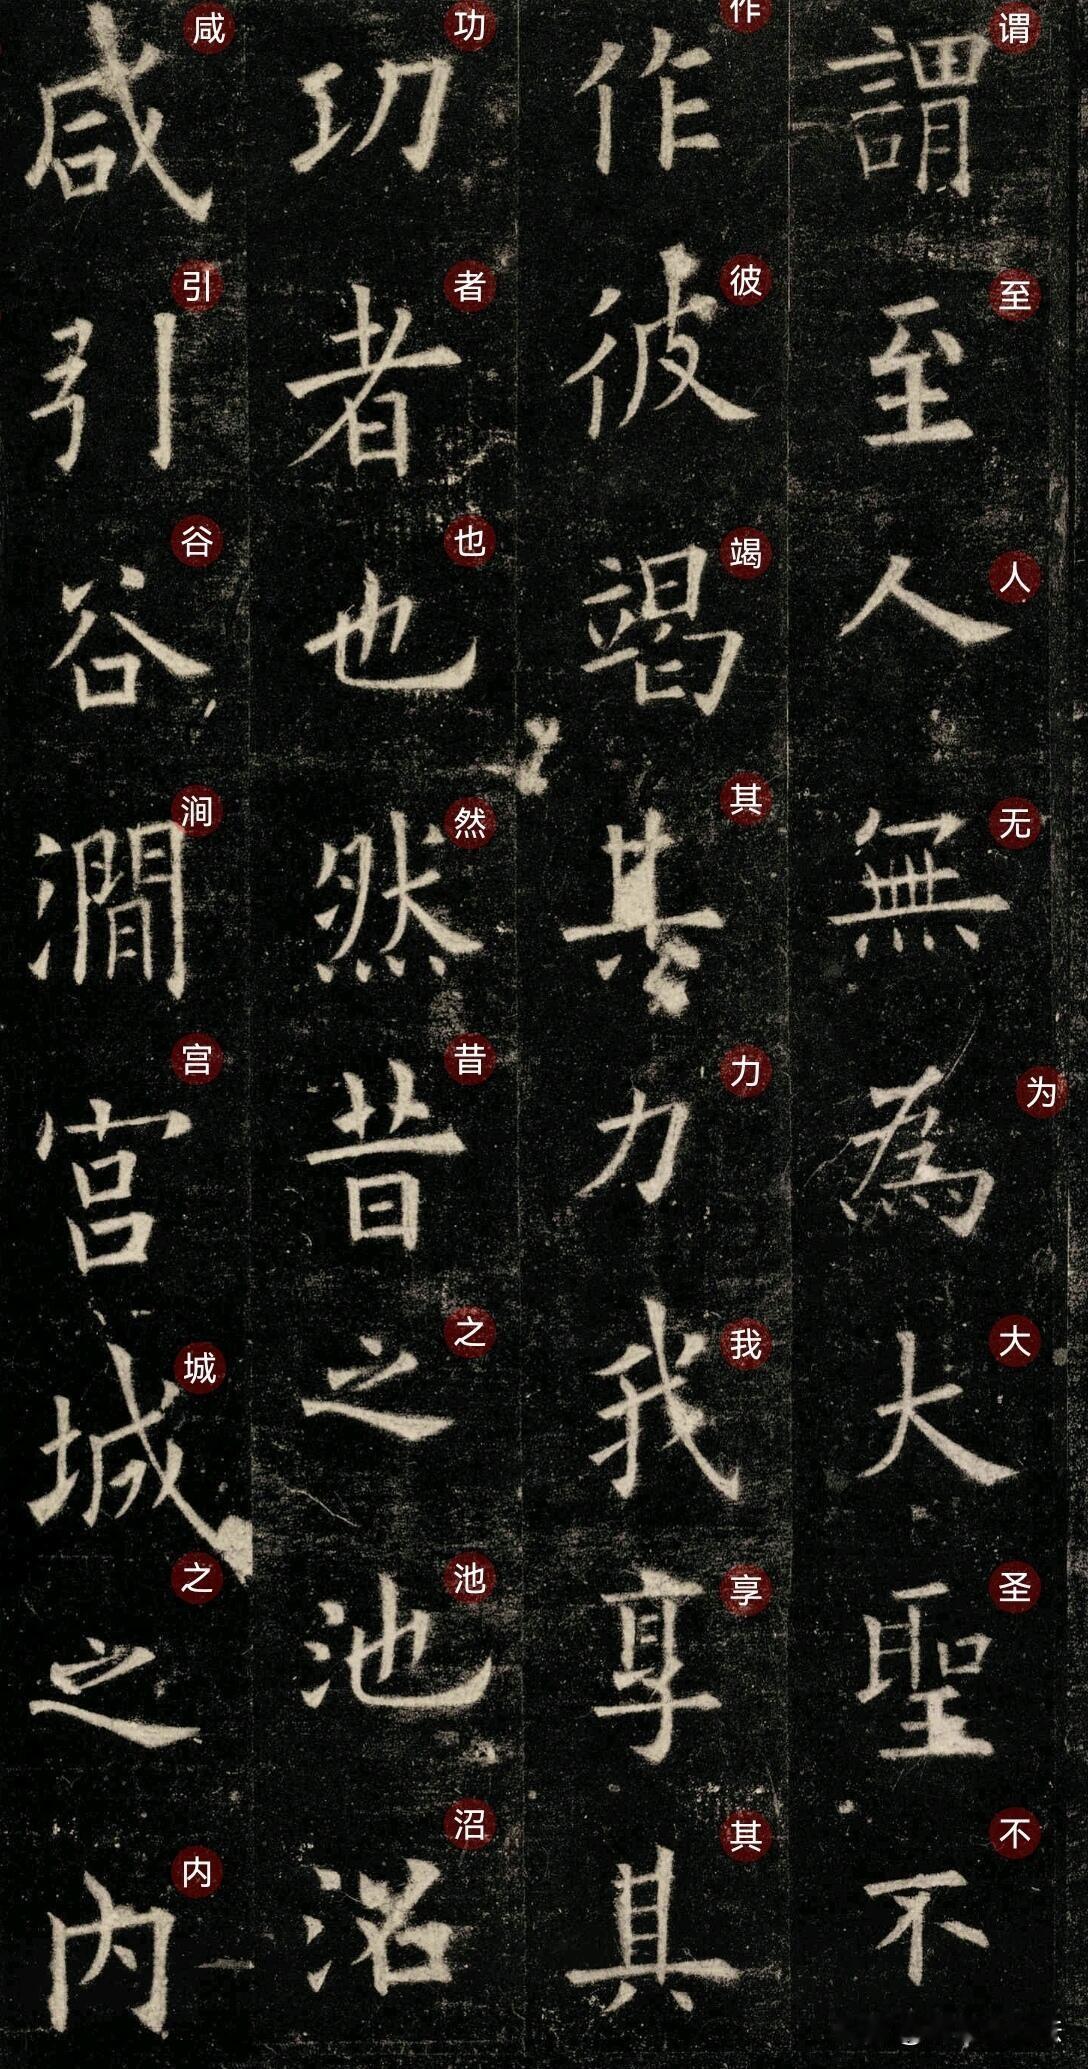 謂至人無為大聖不
作彼竭其力我享其
功者也然昔之池沼
咸引谷澗宮城之内
谓
至
人
无
为
大
圣
不
作
彼
竭
其
力
我
享
其
功
者
也
然
昔
之
池
沼
咸
引
谷
涧
宫
城
之
内